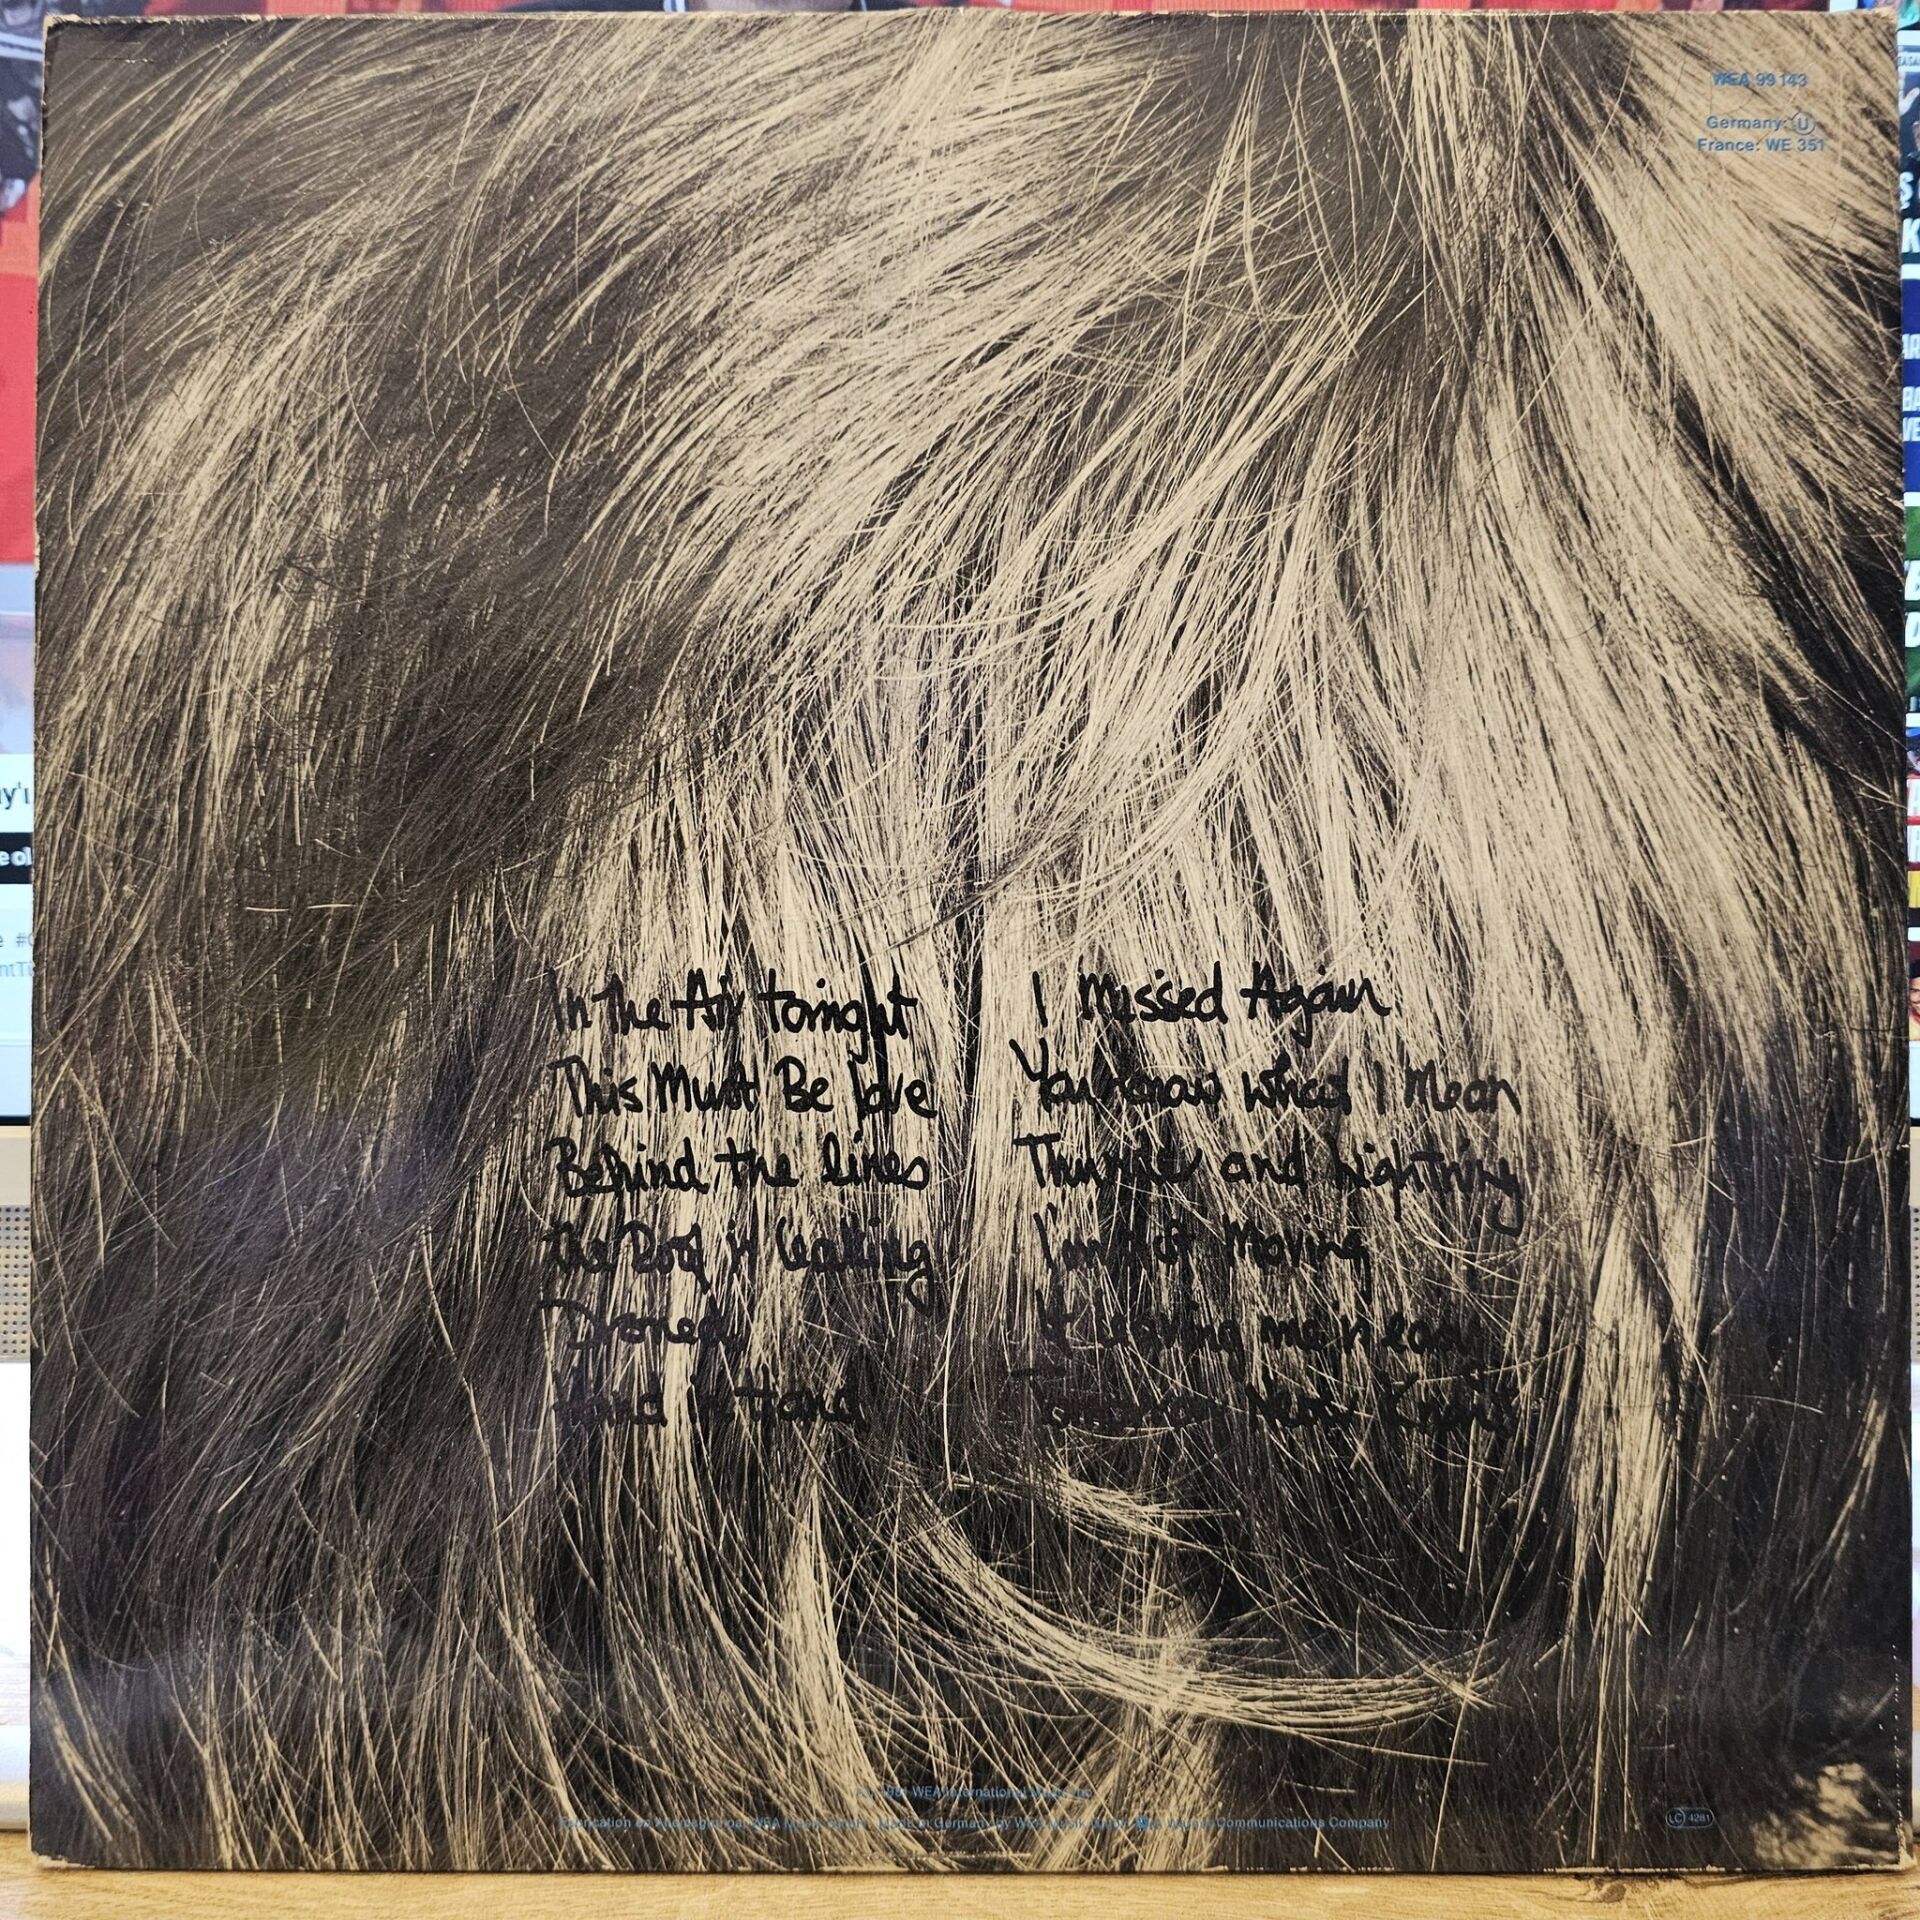 WEA 99 143
Germany: Ⓤ
France: WE 351
In the Air tonight
This Must Be love
Behind the lines
the Roof is leaking
Droned
Hand in Hand
I Missed Again
You know what I Mean
Thunder and Lightning
I'm not Moving
If leaving me is easy
Tomorrow Never Knows
1981 WEA International
Made in Germany by WEA Musik GmbH
Communications Company
LC 4281